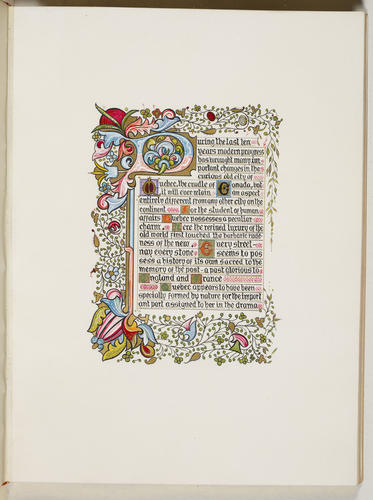 During the last ten
years modern progress
has wrought many im
portant changes in the
curious old city of
Quebec, the cradle of Canada, but
it will ever retain an aspect
entirely different from any other city on the
continent For the student of human
affairs Quebec possesses a peculiar
charm Here the refined luxury of the
old world first touched the barbaric rude
ness of the new Every street
nay every stone seems to pos
sess a history of its own sacred to the
memory of the past - a past glorious to
England and France
Quebec appears to have been
specially formed by nature for the import
ant part assigned to her in the drama